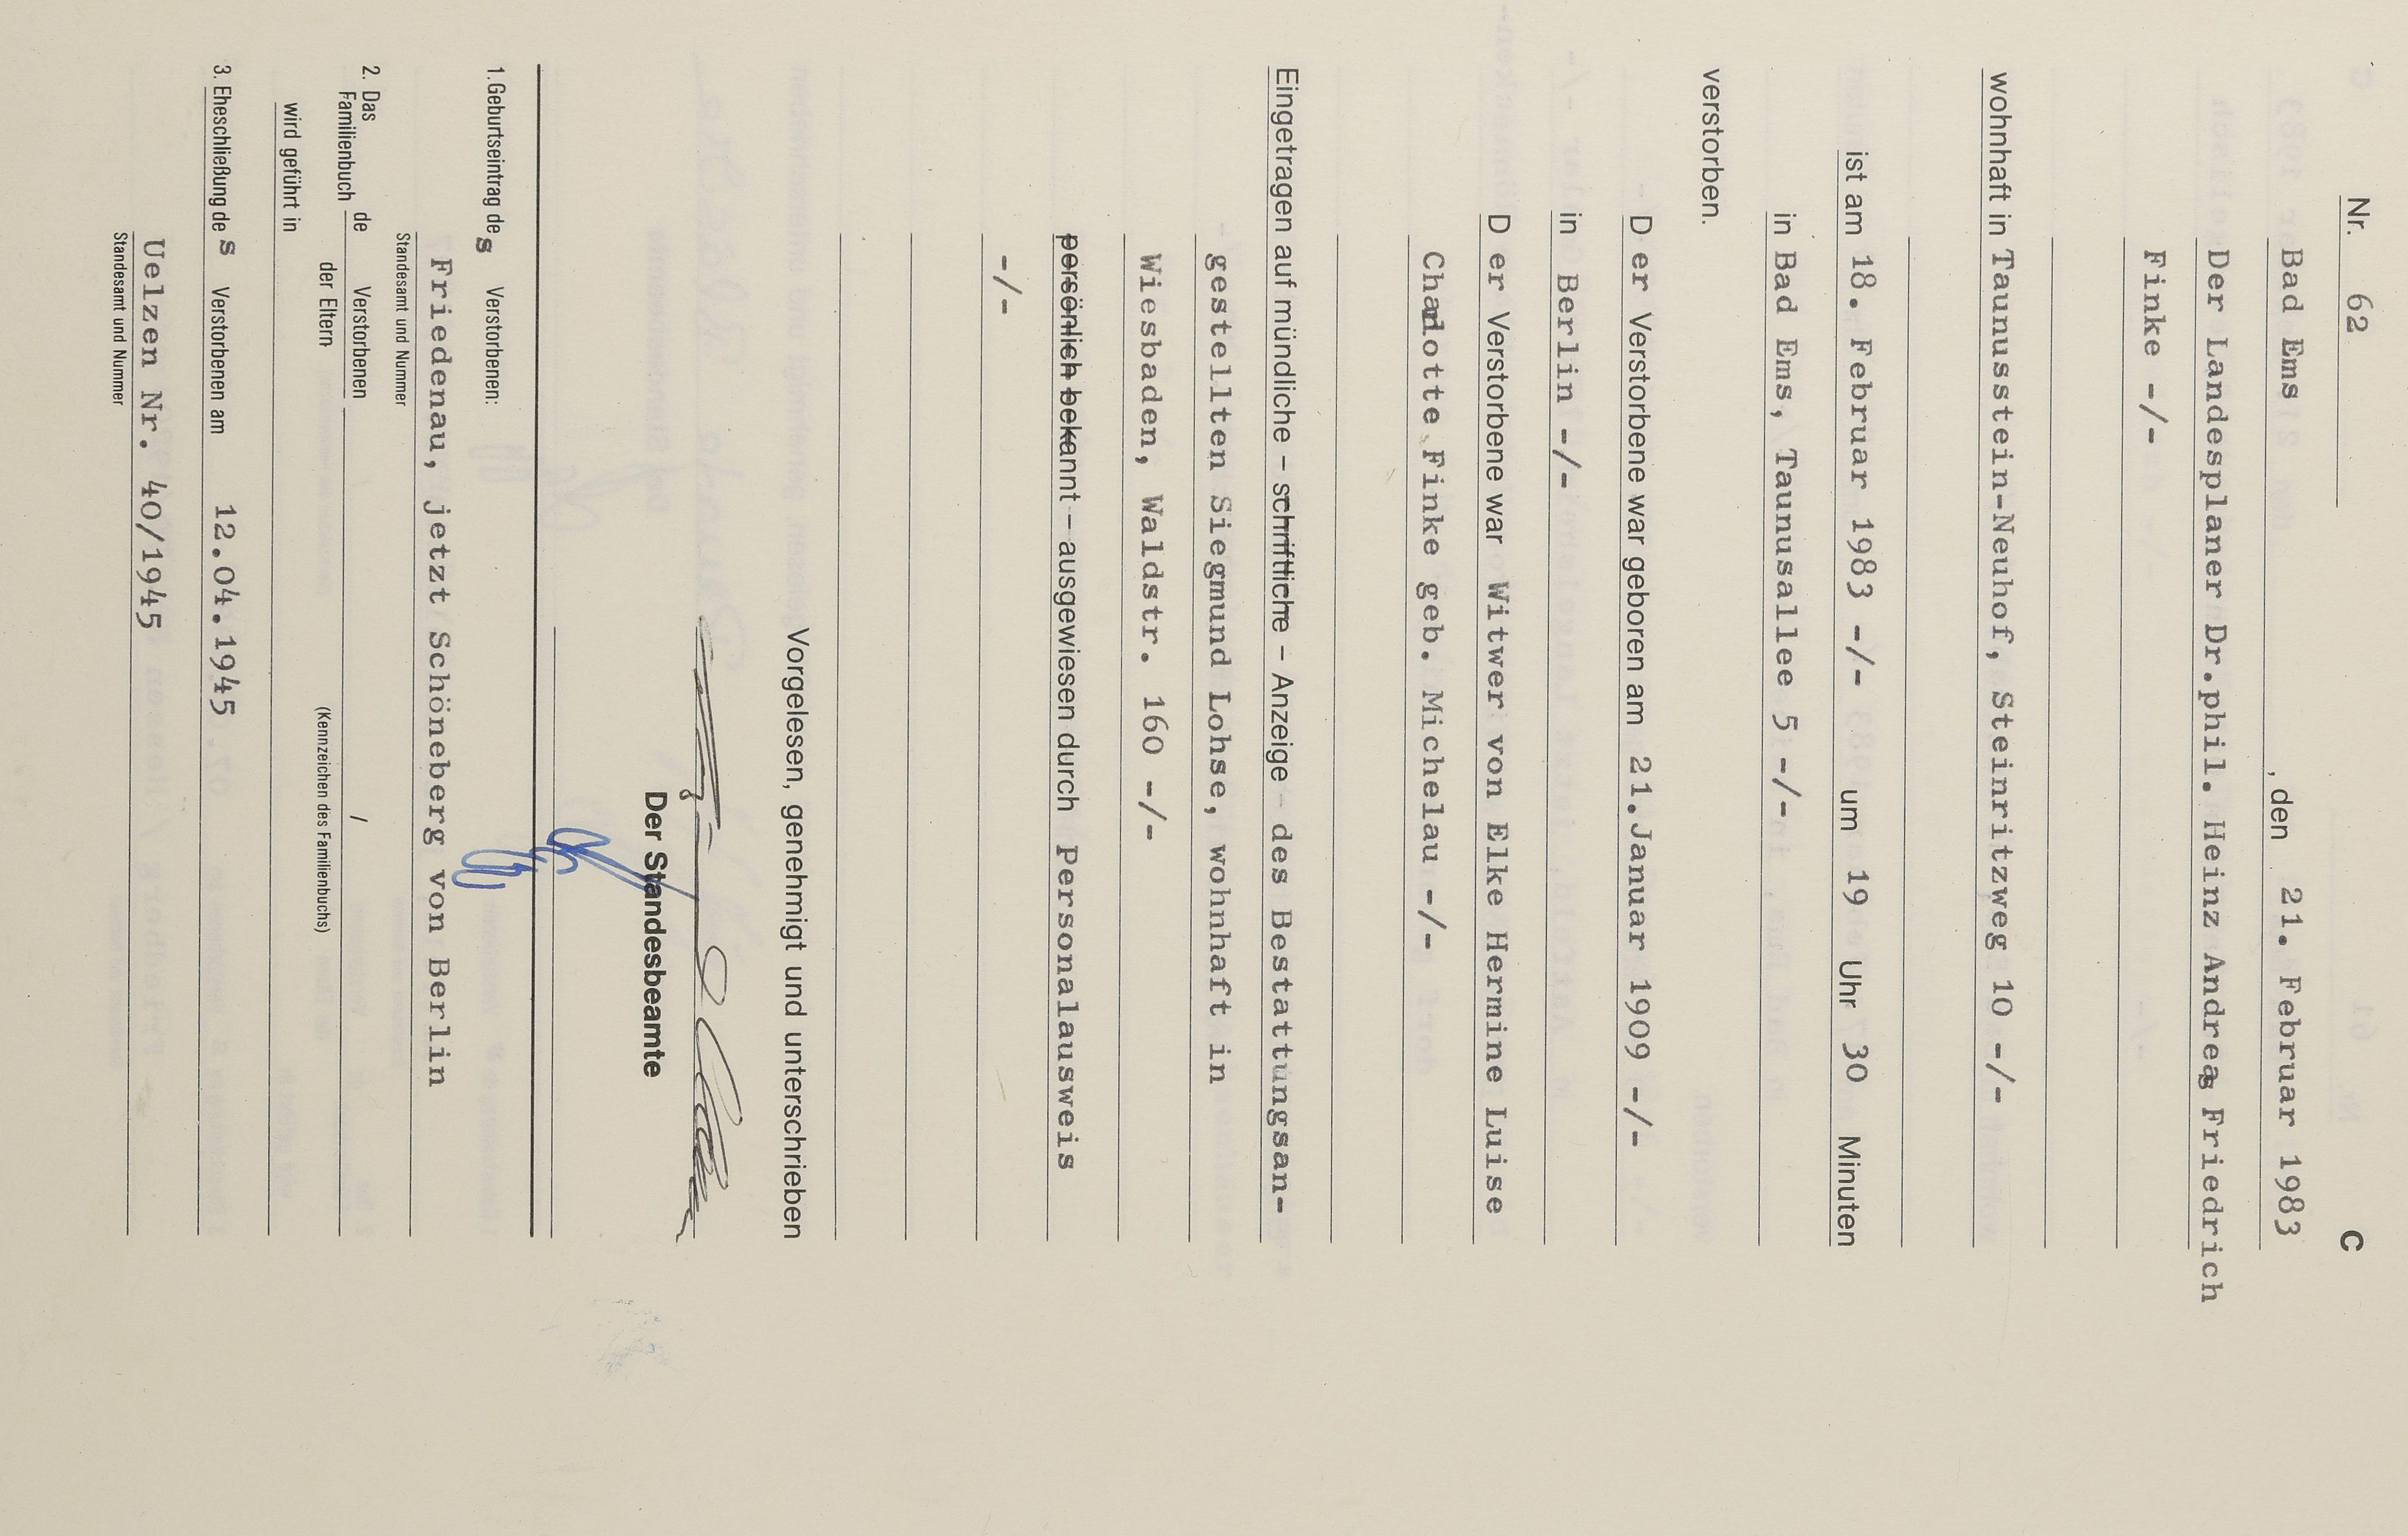 Nr. 62 C
Bad Ems , den 21. Februar 1983
Der Landesplaner Dr.phil. Heinz Andreas Friedrich
Finke -/-
wohnhaft in Taunusstein-Neuhof, Steinritzweg 10 -/-
ist am 18. Februar 1983 -/- um 19 Uhr 30 Minuten
in Bad Ems, Taunusallee 5 -/-
verstorben.
D er Verstorbene war geboren am 21.Januar 1909 -/-
in Berlin -/-
D er Verstorbene war Witwer von Elke Hermine Luise
Charlotte Finke geb. Michelau -/-
Eingetragen auf mündliche – schriftliche – Anzeige des Bestattungsan-
gestellten Siegmund Lohse, wohnhaft in
Wiesbaden, Waldstr. 160 -/-
persönlich bekannt – ausgewiesen durch Personalausweis
-/-
Vorgelesen, genehmigt und unterschrieben
Der Standesbeamte
1. Geburtseintrag des Verstorbenen:
Friedenau, jetzt Schöneberg von Berlin
Standesamt und Nummer
2. Das Familienbuch de Verstorbenen /
der Eltern (Kennzeichen des Familienbuchs)
wird geführt in
3. Eheschließung des Verstorbenen am 12.04.1945
Uelzen Nr. 40/1945
Standesamt und Nummer